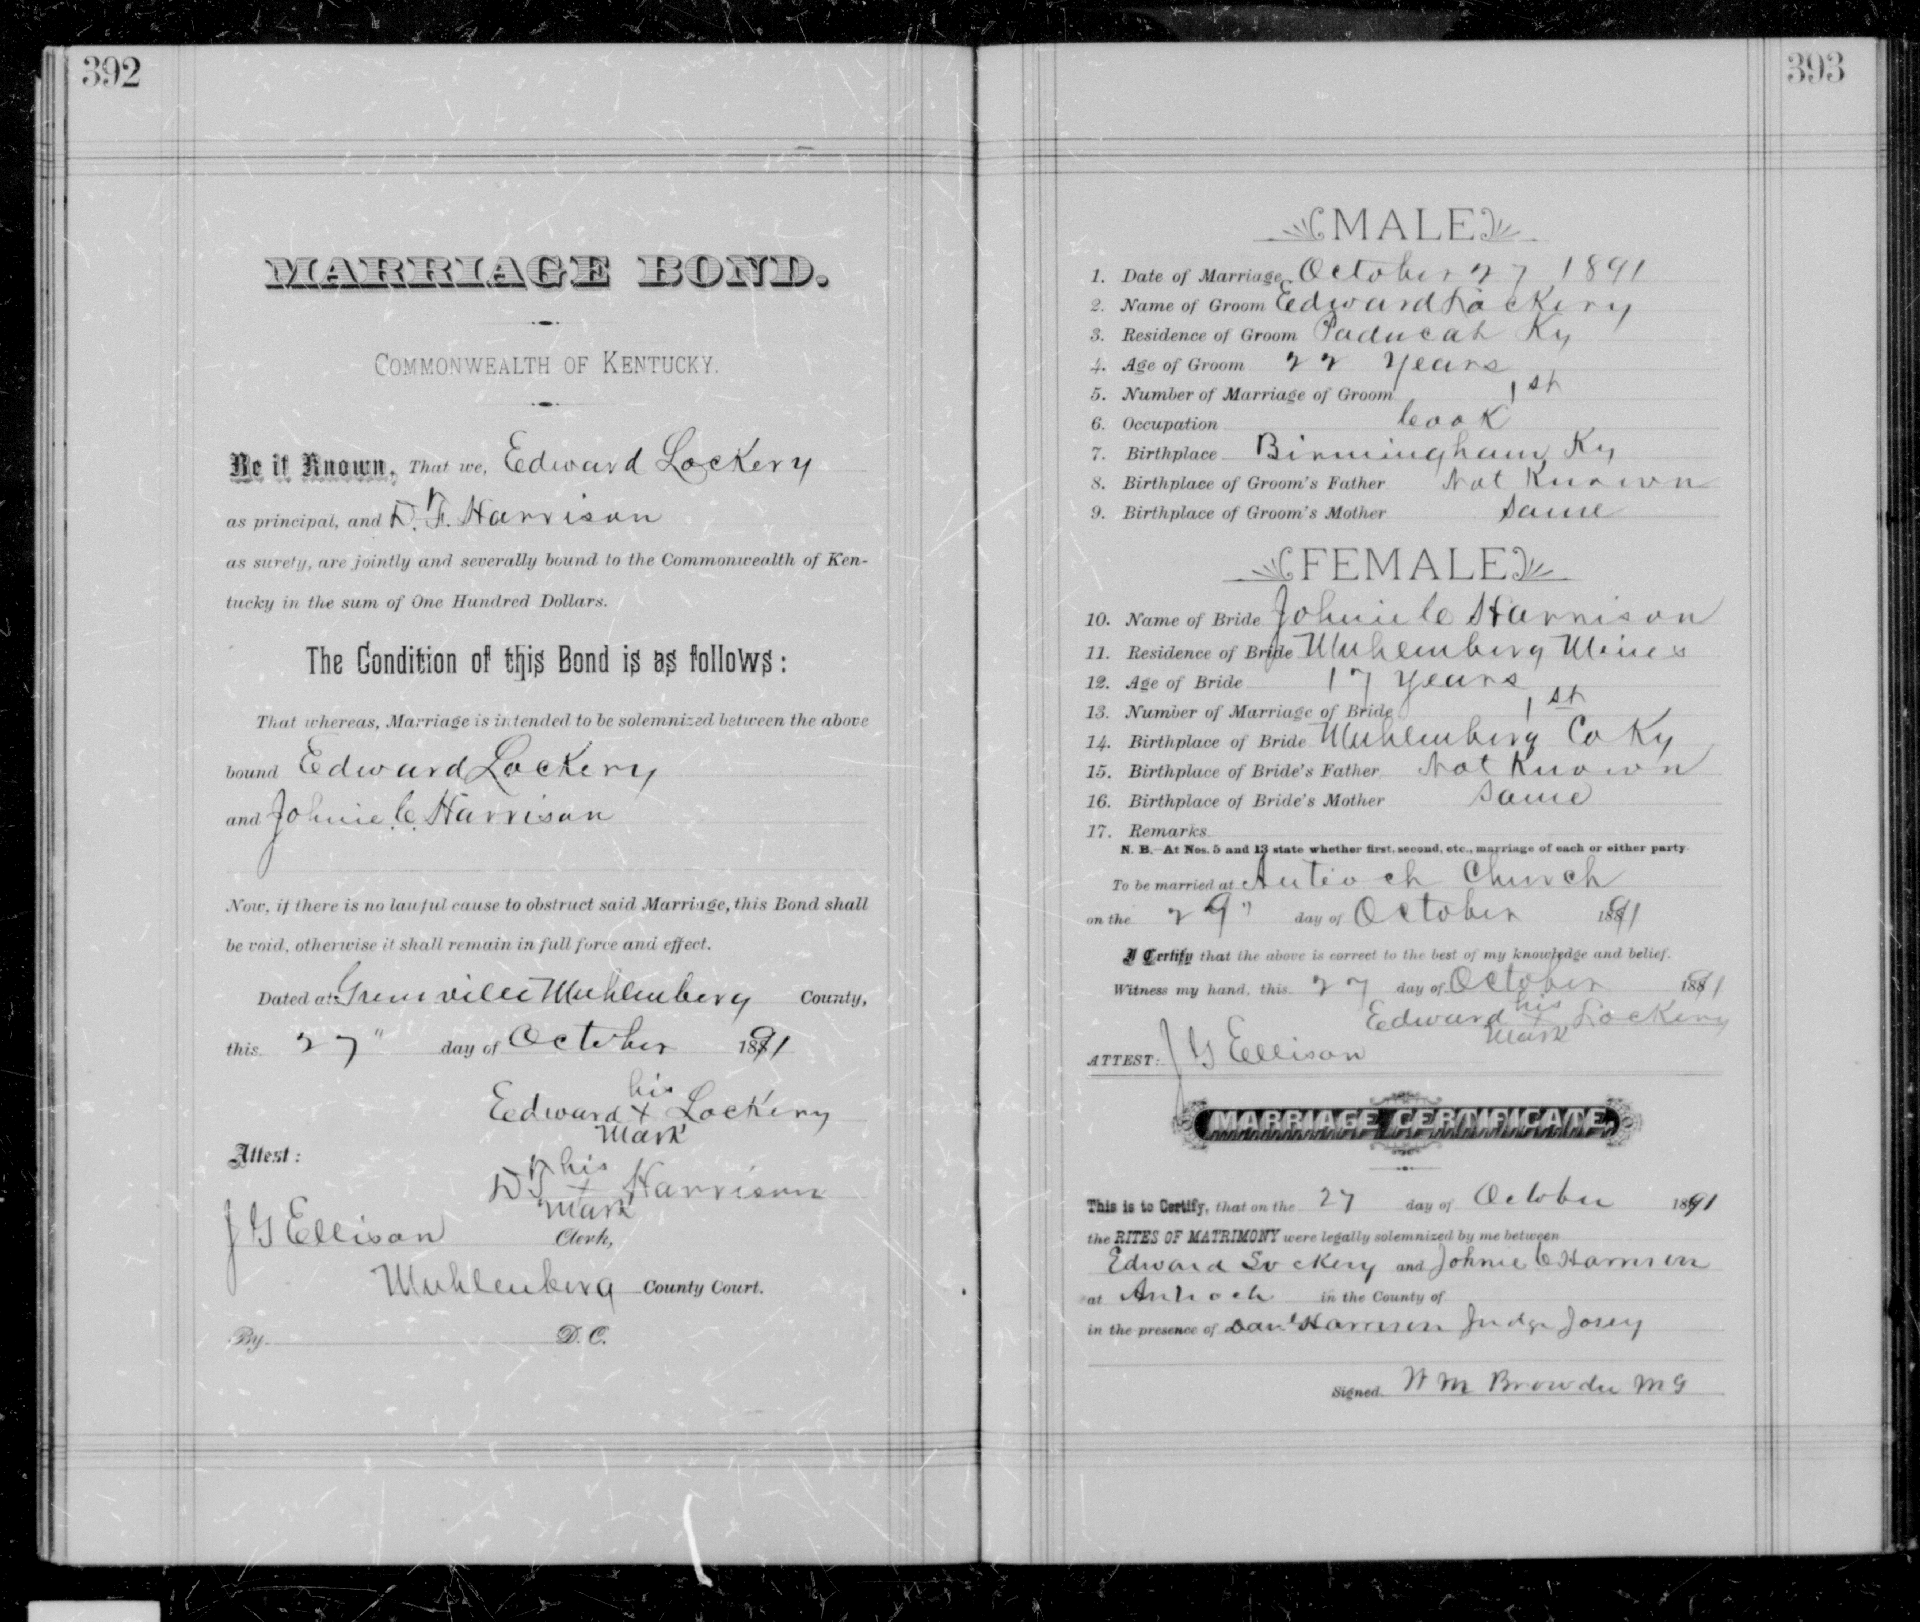 392
MARRIAGE BOND.
COMMONWEALTH OF KENTUCKY.
Be it Known, That we, Edward Lockery
as principal, and D. F. Harrison
as surety, are jointly and severally bound to the Commonwealth of Ken-
tucky in the sum of One Hundred Dollars.
The Condition of this Bond is as follows:
That whereas, Marriage is intended to be solemnized between the above
bound Edward Lockery
and Johnie C. Harrison
Now, if there is no lawful cause to obstruct said Marriage, this Bond shall
be void, otherwise it shall remain in full force and effect.
Dated at Greenville Muhlenberg County,
this 27" day of October 1891
his
Edward x Lockery
mark
Attest:
his
Harrison
mark
J G Ellison Clerk,
Muhlenberg County Court.
By D. C.
393
MALE
1. Date of Marriage October 27 1891
2. Name of Groom Edward Lockery
3. Residence of Groom Paducah Ky
4. Age of Groom 22 years
5. Number of Marriage of Groom 1st
6. Occupation Cook
7. Birthplace Birmingham Ky
8. Birthplace of Groom's Father Not Known
9. Birthplace of Groom's Mother Same
FEMALE
10. Name of Bride Johnie C Harrison
11. Residence of Bride Muhlemberg Mines
12. Age of Bride 17 years
13. Number of Marriage of Bride 1st
14. Birthplace of Bride Muhlenberg Co Ky
15. Birthplace of Bride's Father Not Known
16. Birthplace of Bride's Mother Same
17. Remarks
N. B.—At Nos. 5 and 13 state whether first, second, etc., marriage of each or either party
To be married at Antioch Church
on the 29" day of October 1891
I Certify that the above is correct to the best of my knowledge and belief.
Witness my hand, this 27 day of October 1891
his
Edward x Lockery
mark
ATTEST: J G Ellison
MARRIAGE CERTIFICATE.
This is to Certify, that on the 27 day of October 1891
the RITES OF MATRIMONY were legally solemnized by me between
Edward Lockery and Johnie C Harrison
at Antioch in the County of
in the presence of Danl Harrison Judge Josey
Signed W M Browder M G